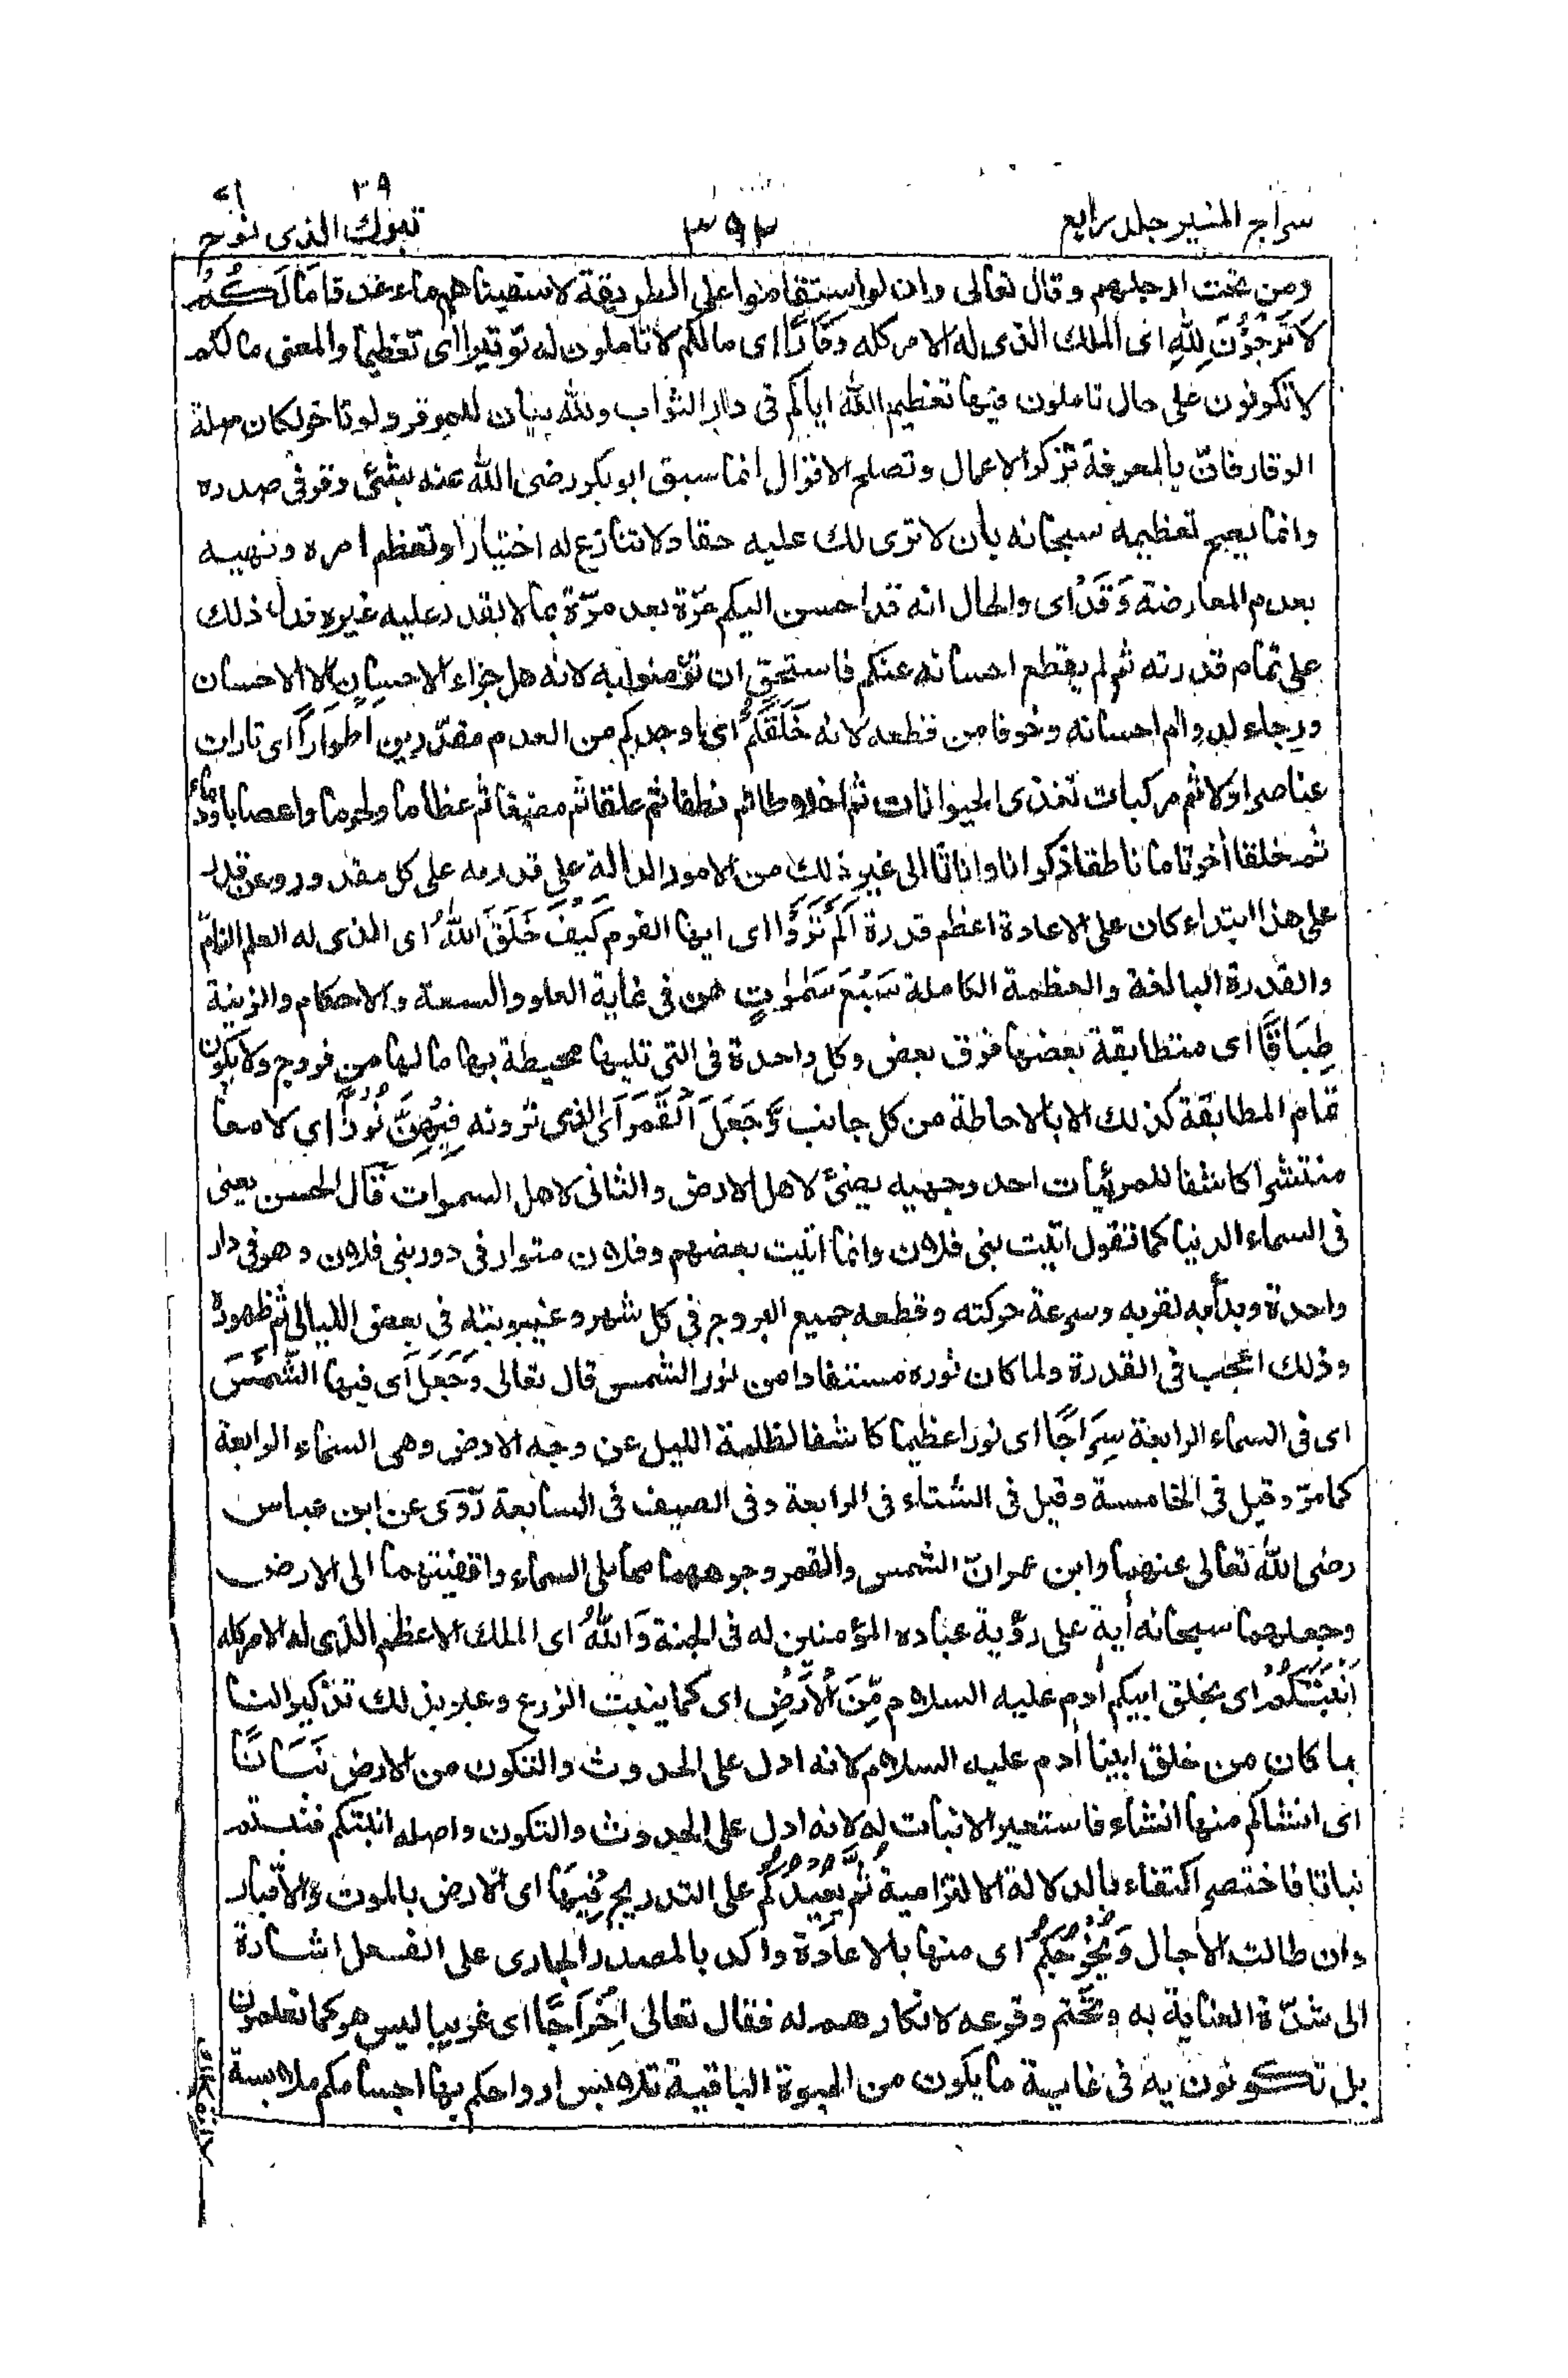 سراج المنير جلد رابع
٣٩٢
تبٰرك الذى ٢٩ نوح ٧١
ومن تحت ارجلهم وقال تعالى وان لو استقاموا على الطريقة لاسقيناهم ماء غدقا مَا لَكُمْ
لَا تَرْجُوْنَ لِلّٰهِ اى الملك الذى له الامر كله وَقَارًا اى مالكم لا تاملون له توقيرا اى تعظيما والمعنى مالكم
لا تكونون على حال تاملون فيها تعظيم الله اياكم فى دار الثواب ولله بيان للموقر ولو تاخر لكان صلة
الوقار فانّ بالمعرفة تزكوا الاعمال وتصلح الاقوال انما سبق ابو بكر رضى الله عنه بشئ وقر فى صدره
وانما يصح تعظيمه سبحانه بأن لا ترى لك عليه حقا ولا تنازع له اختيارا وتعظم امره ونهيه
بعدم المعارضة وَقَدْ اى والحال انه قد احسن اليكم مرّة بعد مرّة بما لا يقدر عليه غيره فدل ذلك
على تمام قدرته ثم لم يقطع احسانه عنكم فاستحق ان تؤمنوا به لانه هل جزاء الاحسان الا الاحسان
ورجاء لدوام احسانه وخوفا من قطعه لانه خَلَقَكُمْ اى اوجدكم من العدم مقدّرين اَطْوَارًا اى تارات
عناصر اولا ثم مركبات تغذى الحيوانات ثم اخلاطا ثم نطفا ثم علقا ثم مضغا ثم عظاما ولحوما واعصابا ودماء
ثم خلقا أخر تاما ناطقا ذكرانا واناثا الى غير ذلك من الامور الدالة على قدرته على كل مقدور ومن قدر
على هذا ابتداء كان على الاعادة اعظم قدرة اَلَمْ تَرَوْا اى ايها القوم كَيْفَ خَلَقَ اللّٰهُ اى الذى له العلم التامّ
والقدرة البالغة والعظمة الكاملة سَبْعَ سَمٰوٰتٍ هن فى غاية العلو والسعة والاحكام والزينة
طِبَاقًا اى متطابقة بعضها فوق بعض وكل واحدة فى التى تليها محيطة بها مالها من فروج ولا يكون
تمام المطابقة كذلك الا بالاحاطة من كل جانب وَّجَعَلَ الْقَمَرَ اى الذى ترونه فِيْهِنَّ نُوْرًا اى لامعا
منتشرا كاشفا للمرئيات احد وجهيه يضئ لاهل الارض والثانى لاهل السموات قال الحسن يعنى
فى السماء الدنيا كما تقول اتيت بنى فلان وانما اتيت بعضهم وفلان متوار فى دور بنى فلان وهو فى دار
واحدة وبدأ به لقربه وسرعة حركته وقطعه جميع البروج فى كل شهر وغيبوبته فى بعض الليالى ثم ظهوره
وذلك اعجب فى القدرة ولما كان نوره مستفادا من نور الشمس قال تعالى وَجَعَلَ اى فيها الشَّمْسَ
اى فى السماء الرابعة سِرَاجًا اى نورا عظيما كاشفا لظلمة الليل عن وجه الارض وهى السماء الرابعة
كما مرّ وقيل فى الخامسة وقيل فى الشتاء فى الرابعة وفى الصيف فى السابعة روى عن ابن عباس
رضى الله تعالى عنهما وابن عمر انّ الشمس والقمر وجوههما مما يلى السماء واقفيتهما الى الارض
وجعلهما سبحانه أية على رؤية عباده المؤمنين له فى الجنة وَاللّٰهُ اى الملك الاعظم الذى له الامر كله
اَنْۢبَتَكُمْ اى بخلق ابيكم أدم عليه السلام مِّنَ الْاَرْضِ اى كما ينبت الزرع وعبر بذلك تذكيرا لنا
بما كان من خلق ابينا أدم عليه السلام لانه ادل على الحدوث والتكون من الارض نَبَاتًا
اى انشاكم منها انشاء فاستعير الانبات له لانه ادل على الحدوث والتكون واصله انبتكم فنبتتم
نباتا فاختصر اكتفاء بالدلالة الالتزامية ثُمَّ يُعِيْدُكُمْ على التدريج فِيْهَا اى الارض بالموت والاقبار
وان طالت الأجال وَيُخْرِجُكُمْ اى منها بالاعادة واكد بالمصدر الجارى على الفعل اشارة
الى شدّة العناية به وتحتم وقوعه لانكارهم له فقال تعالى اِخْرَاجًا اى غريبا ليس هو كما تعلمون
بل تكونون به فى غاية ما يكون من الحيوة الباقية تلابس ارواحكم بها اجسامكم ملابسة